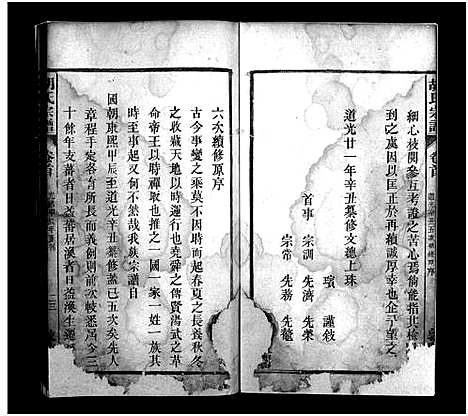 胡氏宗譜
卷首
細心校閱參五考證之苦心焉倘能指其檢
到之處因以匡正於再續誠厚幸也企予望之
道光廿一年辛丑纂修文德上珠
璸 謹敘
首事 宗訓 先濟 先榮
宗常 先務 先鼇
六次續修原序
古今事變之乘莫不因時而起春夏之長養秋冬
之收藏天地以時運行也堯舜之傳賢湯武之革
命帝王以時禪取也推之一國一家一姓一族其
時至事起又何不然哉我族宗譜自
國朝康熙甲辰至道光辛丑纂修蓋已五次矣先人
章程手定各有所長而義例則前次較悉焉今三
十餘年支蕃者日益蕃居渙者日益渙生
胡氏宗譜
卷首